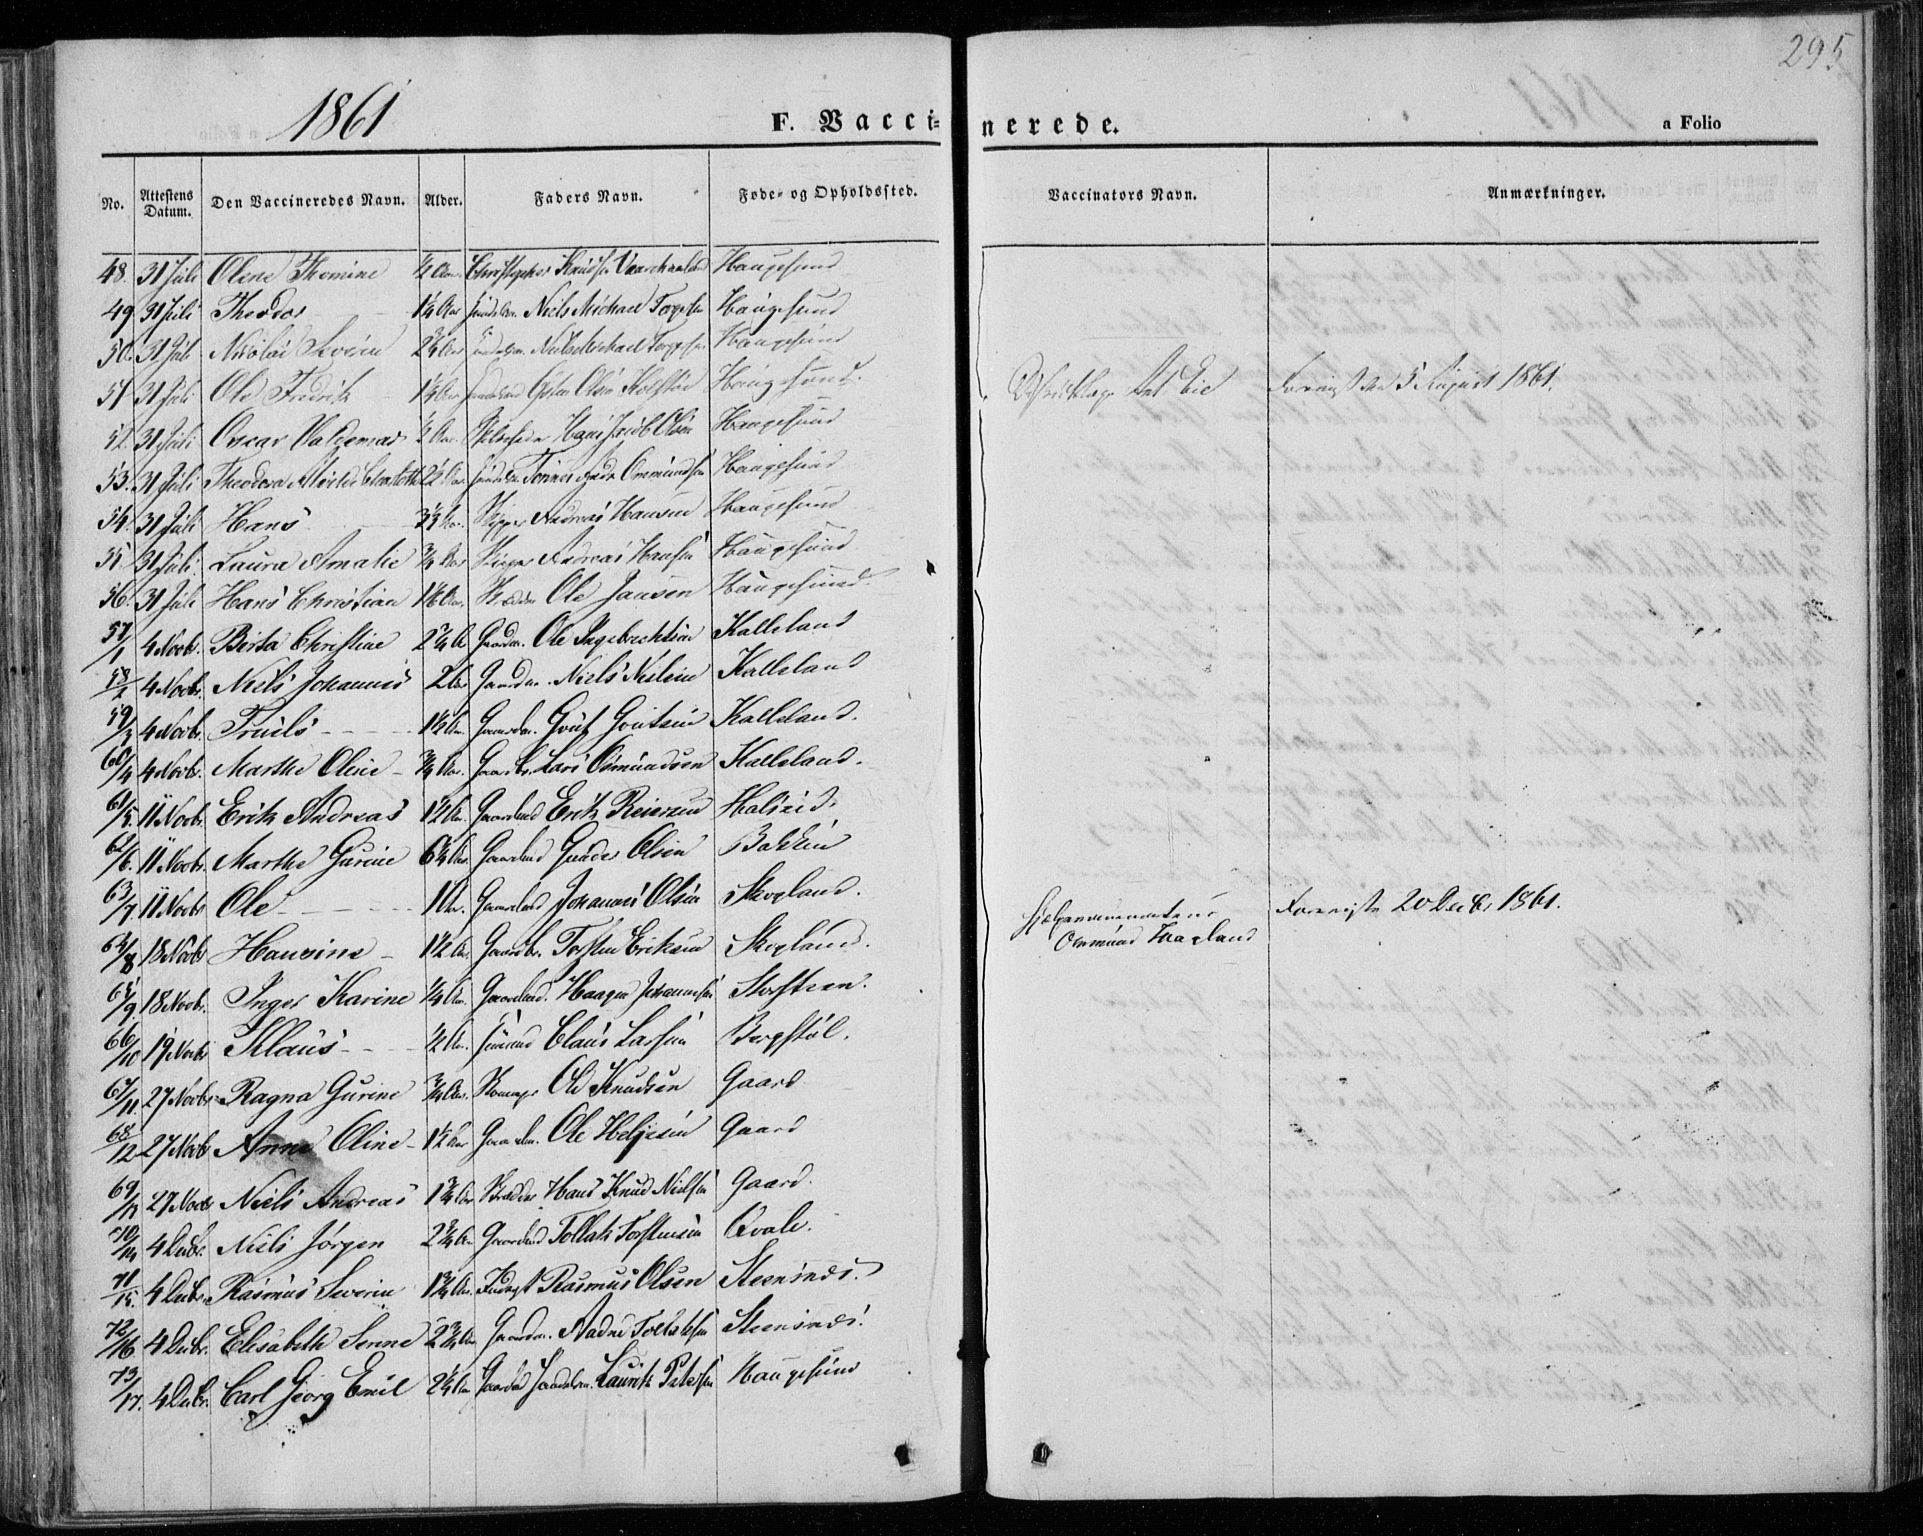 295
1861
F. Vaccinerede.
a Folio
No. Attestens Datum. Den Vaccineredes Navn. Alder. Faders Navn. Føde- og Opholdssted. Vaccinators Navn. Anmærkninger.
48. 31 Juli Olene Thomine ½ Aar. Christopher Knudsen Haugesund
49 31 Juli Theodor 1¼ Aar Niels Michael Torgersen Haugesund
50. 31 Juli Nicolai Severin 2¾ Aar Niels Michael Torgersen Haugesund
51 31 Juli Ole Fredrik Aar Haugesund. Eie 5 August 1861.
52. 31 Juli Oscar Valdemar ½ Aar. Hans Jacob Olsen Haugesund
53. 31 Juli Theodora 2½ Aar Tønnes Ommundsen Haugesund
54. 31 Juli Hans Aar. Skipper Andreas Hansen Haugesund
55 31 Juli Laura Amalie ¾ Aar Skipper Andreas Hansen Haugesund
56. 31 Juli Hans Christian Aar. Ole Jansen Haugesund.
57/1 4 Novbr. Berta Christine 2¾ A Gaardm. Ole Ingebrechtsen Kalleland
58/2 4 Novbr. Niels Johannes 2 Aar Gaardm. Niels Nielsen Kalleland
59/3 4 Novbr. Truels 1½ Aar. Gaardm. Gout Goutsen Kalleland.
60/4 4 Novbr. Marthe Oline ¾ Aar. Gaardbr. Lars Osmundsen Kalleland.
61/5 11 Novbr. Erik Andreas 1½ Aar. Gaardmd Erik Reiersen Halseid.
62/6. 11 Novbr. Marthe Gurine 6¾ Aar. Gaardmd Gunder Olsen Bakken
63/7 11 Novbr Ole 1 Aar. Gaardmd Johannes Olsen Skogland. 20 Decbr 1861.
64/8 18 Novbr Hansine 1½ Aar. Gaardbr. Torsten Eriksen Skogland. Ommund Haaland
65/9. 18 Novbr. Inger Karine Aar. Gaardmd. Haagen Johannesen Storsteen.
66/10 19 Novbr Klaus ½ Aar. Huusmd Claus Larsen
67/11. 27 Novbr Ragna Gurine ¾ Aar. Skomager Ole Knudsen Gaard
68/12 27 Novbr Anne Oline 1½ Aar Gaardm. Ole Helgesen Gaard
69/13 27 Novbr Niels Andreas 1¾ Aar Skrædder Hans Knud Nielsen Gaard.
70/14 4 Decbr. Niels Jørgen 2¾ Aar Gaardmd Tollak Torstensen Qvale.
71/15. 4 Decbr. Rasmus Severin 1¾ Aar. Rasmus Olsen Steensnes.
72/16 4 Decbr. Elisabeth Serine 2¾ Aar Gaardm. Aadne Tollaksen Steensnes.
73/17. 4 Decbr. Carl Georg Emil 2¼ Aar Handelsm. Laurits Petersen Haugesund